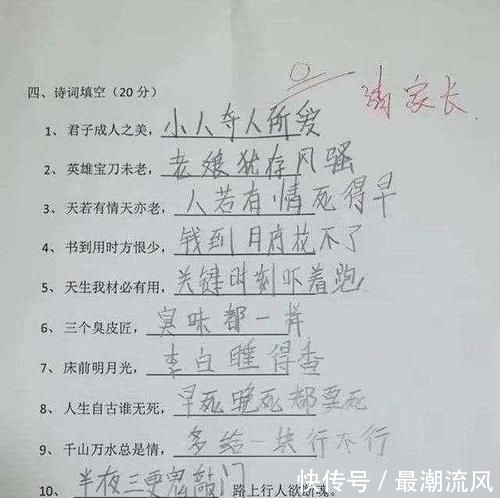 0
请家长
四、诗词填空（20 分）
1、君子成人之美，小人夺人所爱
2、英雄宝刀未老，老娘犹存风骚
3、天若有情天亦老，人若有情死得早
4、书到用时方恨少，钱到月底拉不了
5、天生我材必有用，关键时刻吓着跑
6、三个臭皮匠，臭味都一样
7、床前明月光，李白睡得香
8、人生自古谁无死，早死晚死都要死
9、千山万水总是情，多给一块行不行
10、半夜三更鬼敲门路上行人欲断魂。
快传号／最潮流风